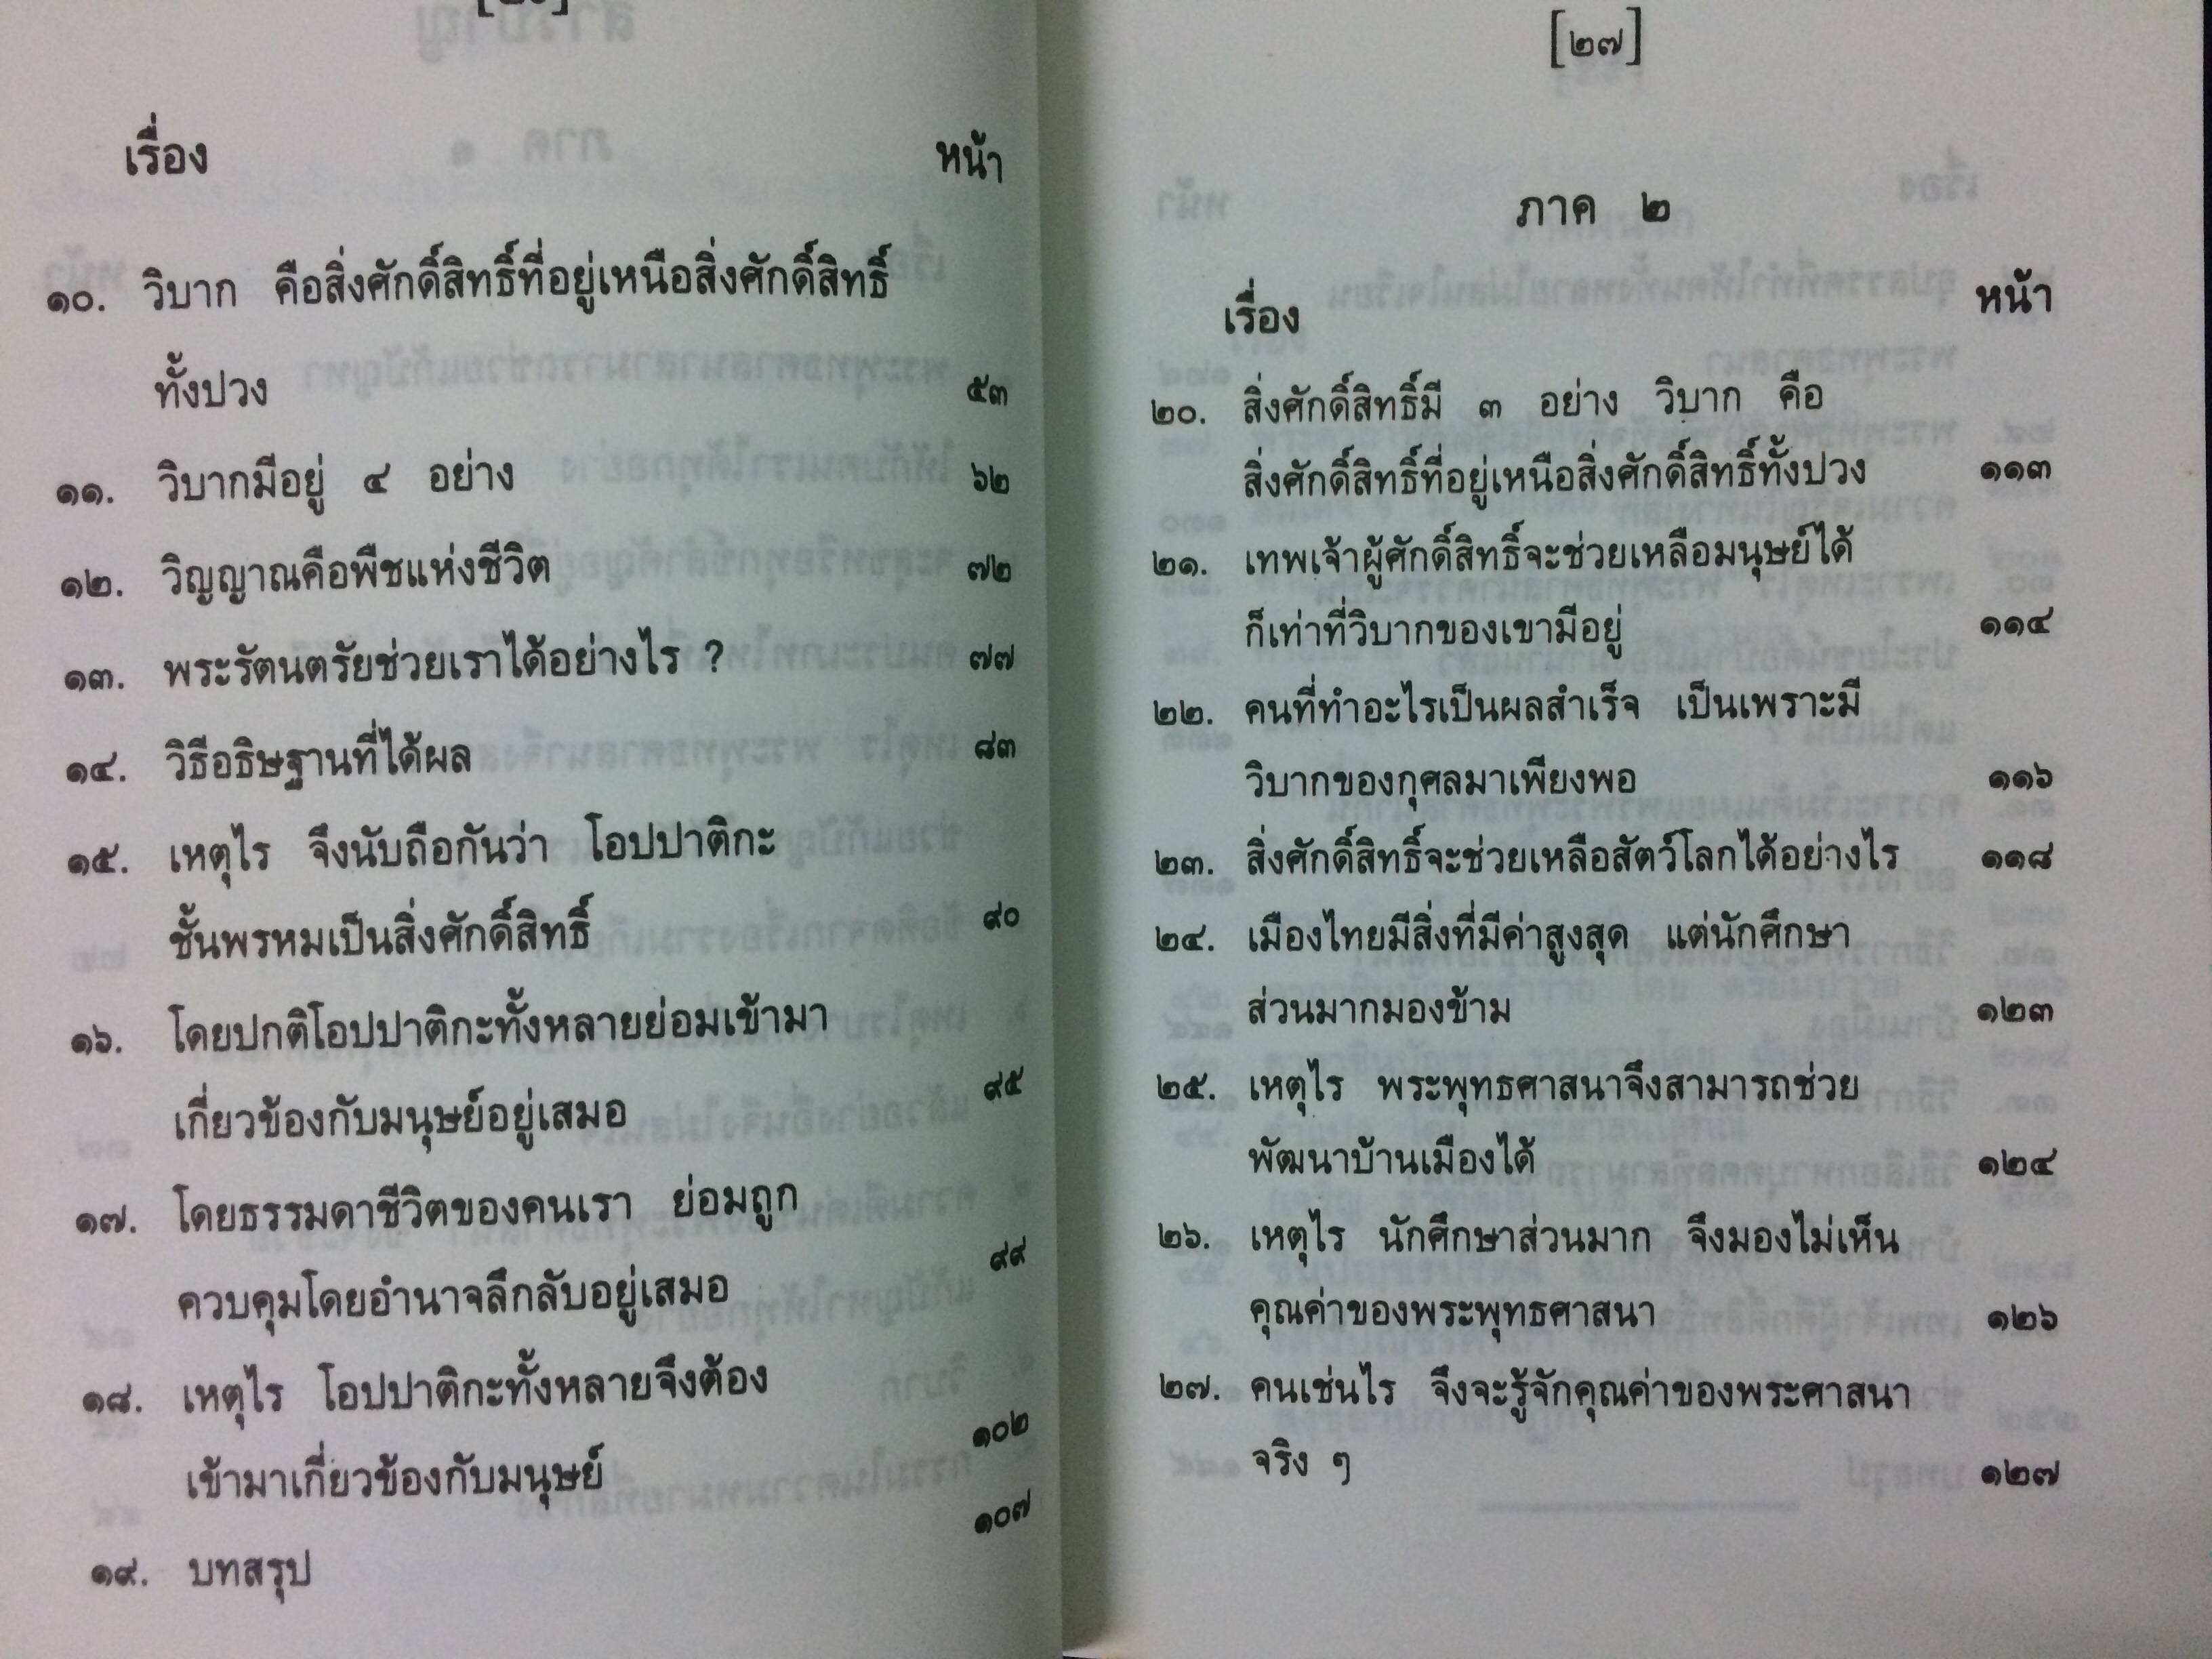 เรื่อง หน้า
๑๐. วิบาก คือสิ่งศักดิ์สิทธิ์ที่อยู่เหนือสิ่งศักดิ์สิทธิ์
ทั้งปวง ๕๓
๑๑. วิบากมีอยู่ ๔ อย่าง ๖๒
๑๒. วิญญาณคือพืชแห่งชีวิต ๗๒
๑๓. พระรัตนตรัยช่วยเราได้อย่างไร ? ๗๗
๑๔. วิธีอธิษฐานที่ได้ผล ๘๓
๑๕. เหตุไร จึงนับถือกันว่า โอปปาติกะ
ชั้นพรหมเป็นสิ่งศักดิ์สิทธิ์ ๙๐
๑๖. โดยปกติโอปปาติกะทั้งหลายย่อมเข้ามา
เกี่ยวข้องกับมนุษย์อยู่เสมอ ๙๕
๑๗. โดยธรรมดาชีวิตของคนเรา ย่อมถูก
ควบคุมโดยอำนาจลึกลับอยู่เสมอ ๙๙
๑๘. เหตุไร โอปปาติกะทั้งหลายจึงต้อง
เข้ามาเกี่ยวข้องกับมนุษย์ ๑๐๒
๑๙. บทสรุป ๑๐๗
[๒๗]
ภาค ๒
เรื่อง หน้า
๒๐. สิ่งศักดิ์สิทธิ์มี ๓ อย่าง วิบาก คือ
สิ่งศักดิ์สิทธิ์ที่อยู่เหนือสิ่งศักดิ์สิทธิ์ทั้งปวง ๑๑๓
๒๑. เทพเจ้าผู้ศักดิ์สิทธิ์จะช่วยเหลือมนุษย์ได้
ก็เท่าที่วิบากของเขามีอยู่ ๑๑๔
๒๒. คนที่ทำอะไรเป็นผลสำเร็จ เป็นเพราะมี
วิบากของกุศลมาเพียงพอ ๑๑๖
๒๓. สิ่งศักดิ์สิทธิ์จะช่วยเหลือสัตว์โลกได้อย่างไร ๑๑๘
๒๔. เมืองไทยมีสิ่งที่มีค่าสูงสุด แต่นักศึกษา
ส่วนมากมองข้าม ๑๒๓
๒๕. เหตุไร พระพุทธศาสนาจึงสามารถช่วย
พัฒนาบ้านเมืองได้ ๑๒๔
๒๖. เหตุไร นักศึกษาส่วนมาก จึงมองไม่เห็น
คุณค่าของพระพุทธศาสนา ๑๒๖
๒๗. คนเช่นไร จึงจะรู้จักคุณค่าของพระศาสนา
จริง ๆ ๑๒๗